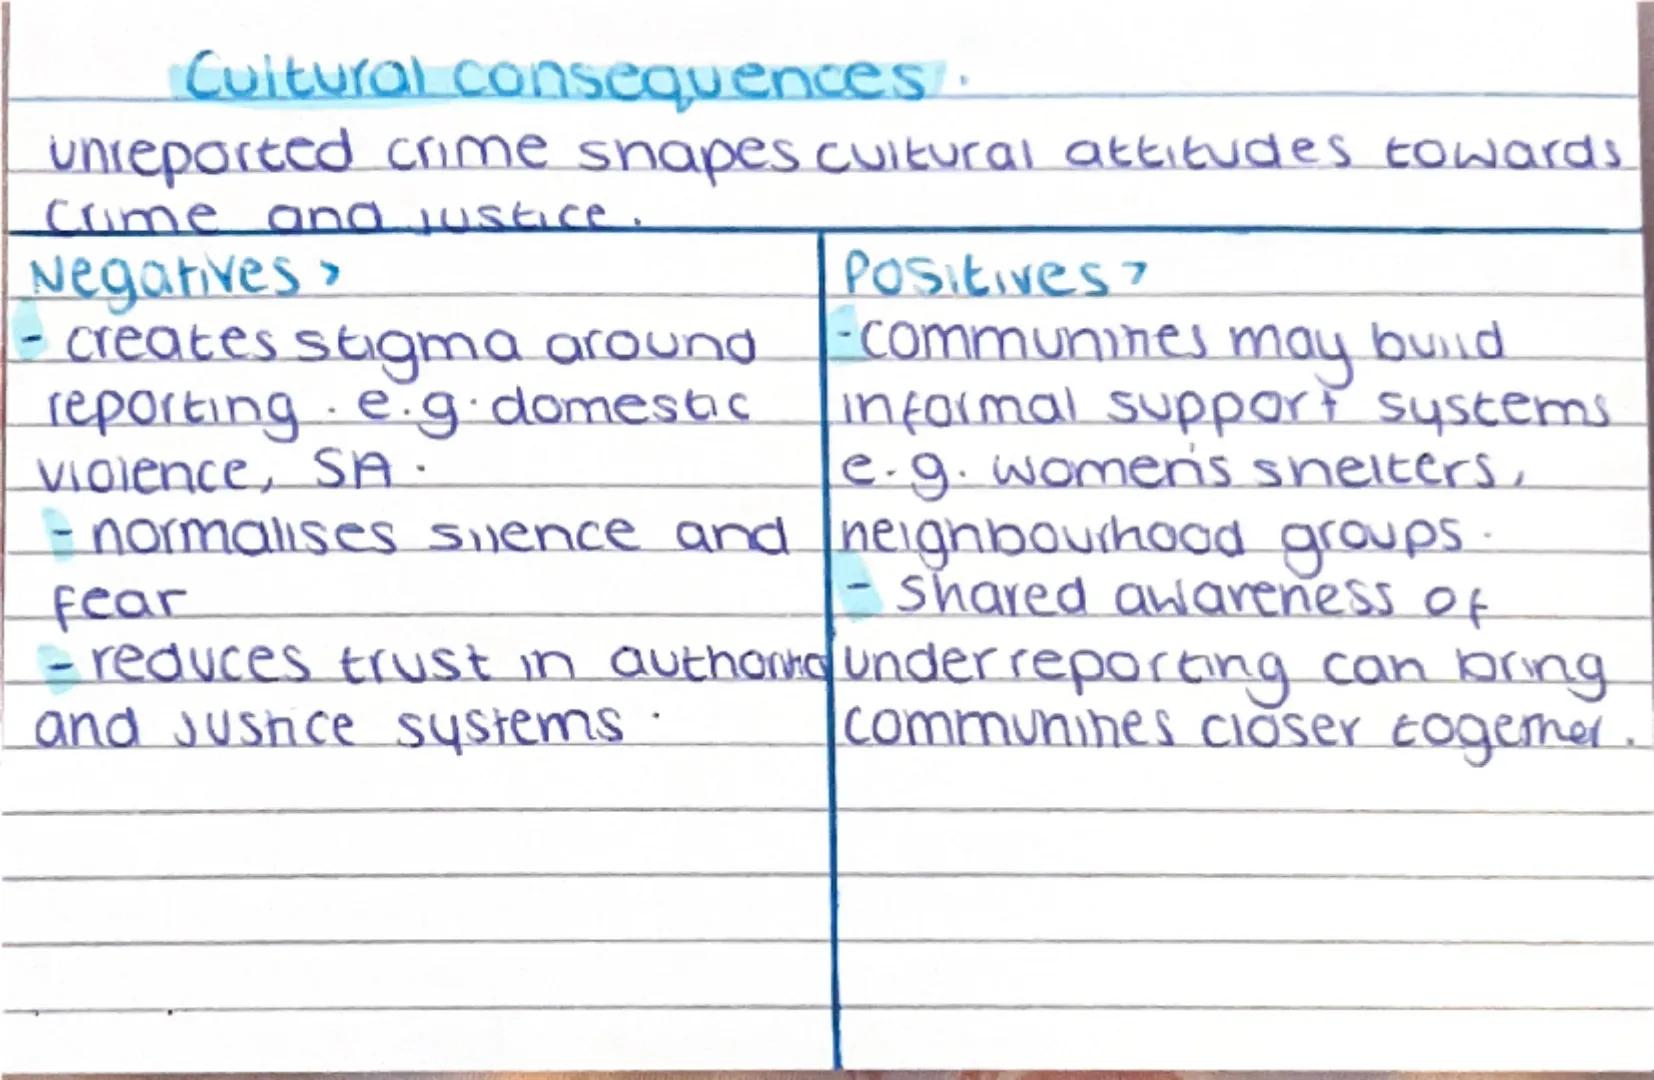 Cultural consequences.
unreported crime shapes cultural attitudes towards
crime and justice.
Negatives >
- creates stigma around
reporting. e.g. domestic
violence, SA.
- normalises silence and
fear
- reduces trust in authority
and justice systems.
Positives >
- communities may build
informal support systems
e.g. women's shelters,
neighbourhood groups.
- Shared awareness of
underreporting can bring
communities closer together.